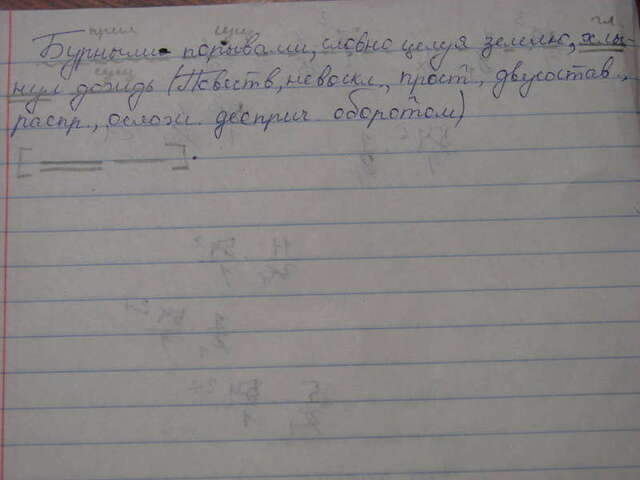 прил сущ гл.
Бурными порывами, словно целуя землю, хлы-
сущ
нул дождь (Повеств, невоскл., прост., двусостав.,
распр., ослож. десприч оборотом)
[ ].